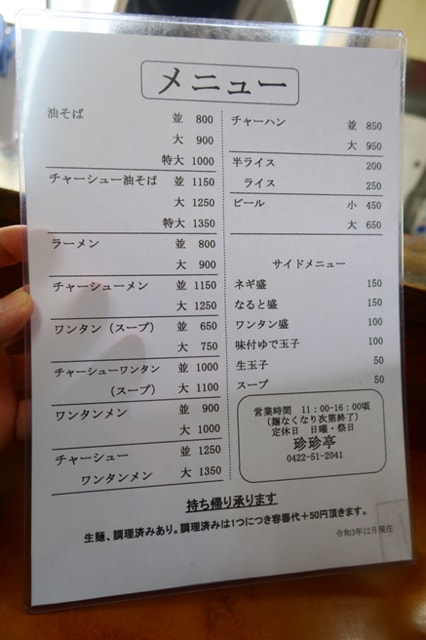 メニュー
油そば 並 800
大 900
特大 1000
チャーシュー油そば 並 1150
大 1250
特大 1350
ラーメン 並 800
大 900
チャーシューメン 並 1150
大 1250
ワンタン（スープ） 並 650
大 750
チャーシューワンタン 並 1000
（スープ） 大 1100
ワンタンメン 並 900
大 1000
チャーシュー 並 1250
ワンタンメン 大 1350
チャーハン 並 850
大 950
半ライス 200
ライス 250
ビール 小 450
大 650
サイドメニュー
ネギ盛 150
なると盛 150
ワンタン盛 100
味付ゆで玉子 100
生玉子 50
スープ 50
営業時間 11：00-16：00頃
（麺なくなり次第終了）
定休日 日曜・祭日
珍珍亭
0422-51-2041
持ち帰り承ります
生麺、調理済みあり。調理済みは1つにつき容器代＋50円頂きます。
令和3年12月現在